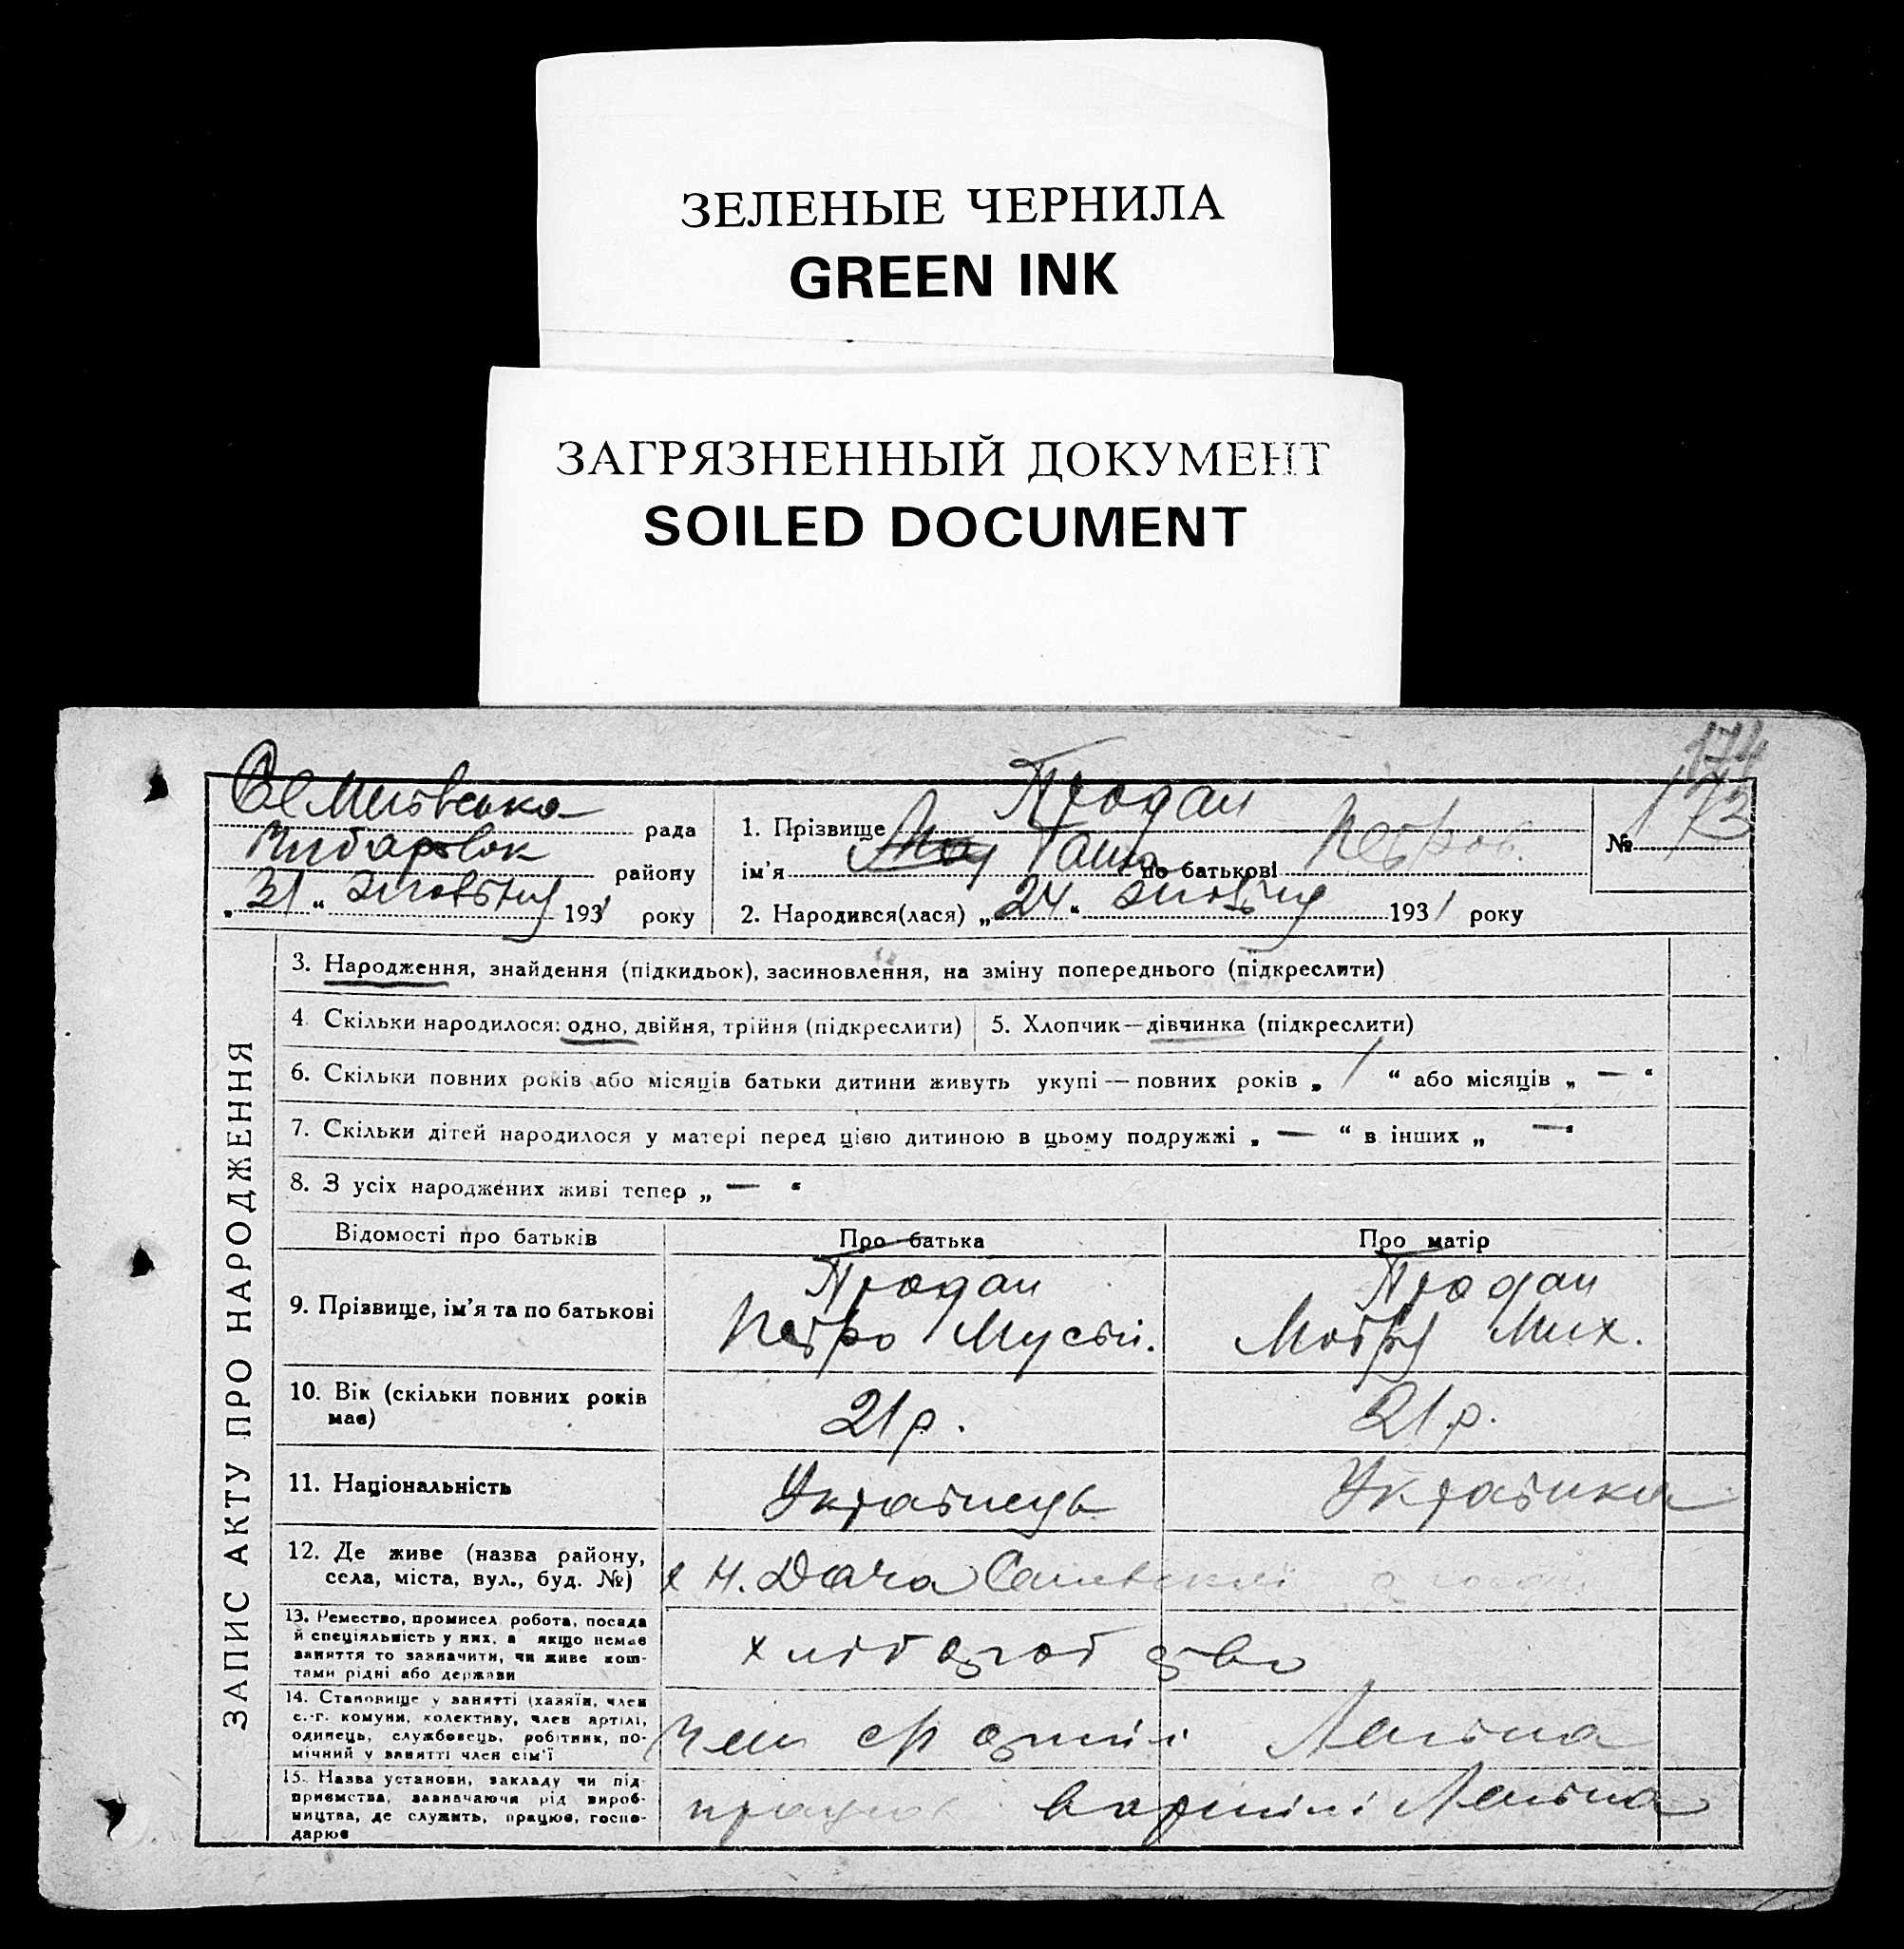 ЗЕЛЕНЫЕ ЧЕРНИЛА
GREEN INK
ЗАГРЯЗНЕННЫЙ ДОКУМЕНТ
SOILED DOCUMENT
174
рада
району
„31“ жовтня 1931 року
1. Прізвище Продан
ім'я Ганна по батькові Петров.
2. Народився(лася) „24“ жовтня 1931 року
№ 173
ЗАПИС АКТУ ПРО НАРОДЖЕННЯ
3. Народження, знайдення (підкидьок), засиновлення, на зміну попереднього (підкреслити)
4. Скільки народилося: одно, двійня, трійня (підкреслити)
5. Хлопчик—дівчинка (підкреслити)
6. Скільки повних років або місяців батьки дитини живуть укупі — повних років „ 1 “ або місяців „ — “
7. Скільки дітей народилося у матері перед цією дитиною в цьому подружжі „ — “ в інших „ — “
8. З усіх народжених живі тепер „ — “
Відомості про батьків Про батька Про матір
9. Прізвище, ім'я та по батькові
Продан
Петро Мусій.
Продан
Мотря Мих.
10. Вік (скільки повних років має)
21 р.
21 р.
11. Національність
Українець
Українка
12. Де живе (назва району,
села, міста, вул., буд. №)
х Н. Дача
13. Ремество, промисел, робота, посада
й спеціяльність у них, а якщо немає
заняття то зазначити, чи живе кош-
тами рідні або держави
хліборобство
14. Становище у занятті (хазяїн, член
с.-г. комуни, колективу, член артілі,
одинець, службовець, робітник, по-
мічний у занятті член сім'ї
Член с/г артілі Леніна
15. Назва установи, закладу чи під-
приємства, зазначаючи рід вироб-
ництва, де служить, працює, госпо-
дарює
працює в артілі Леніна